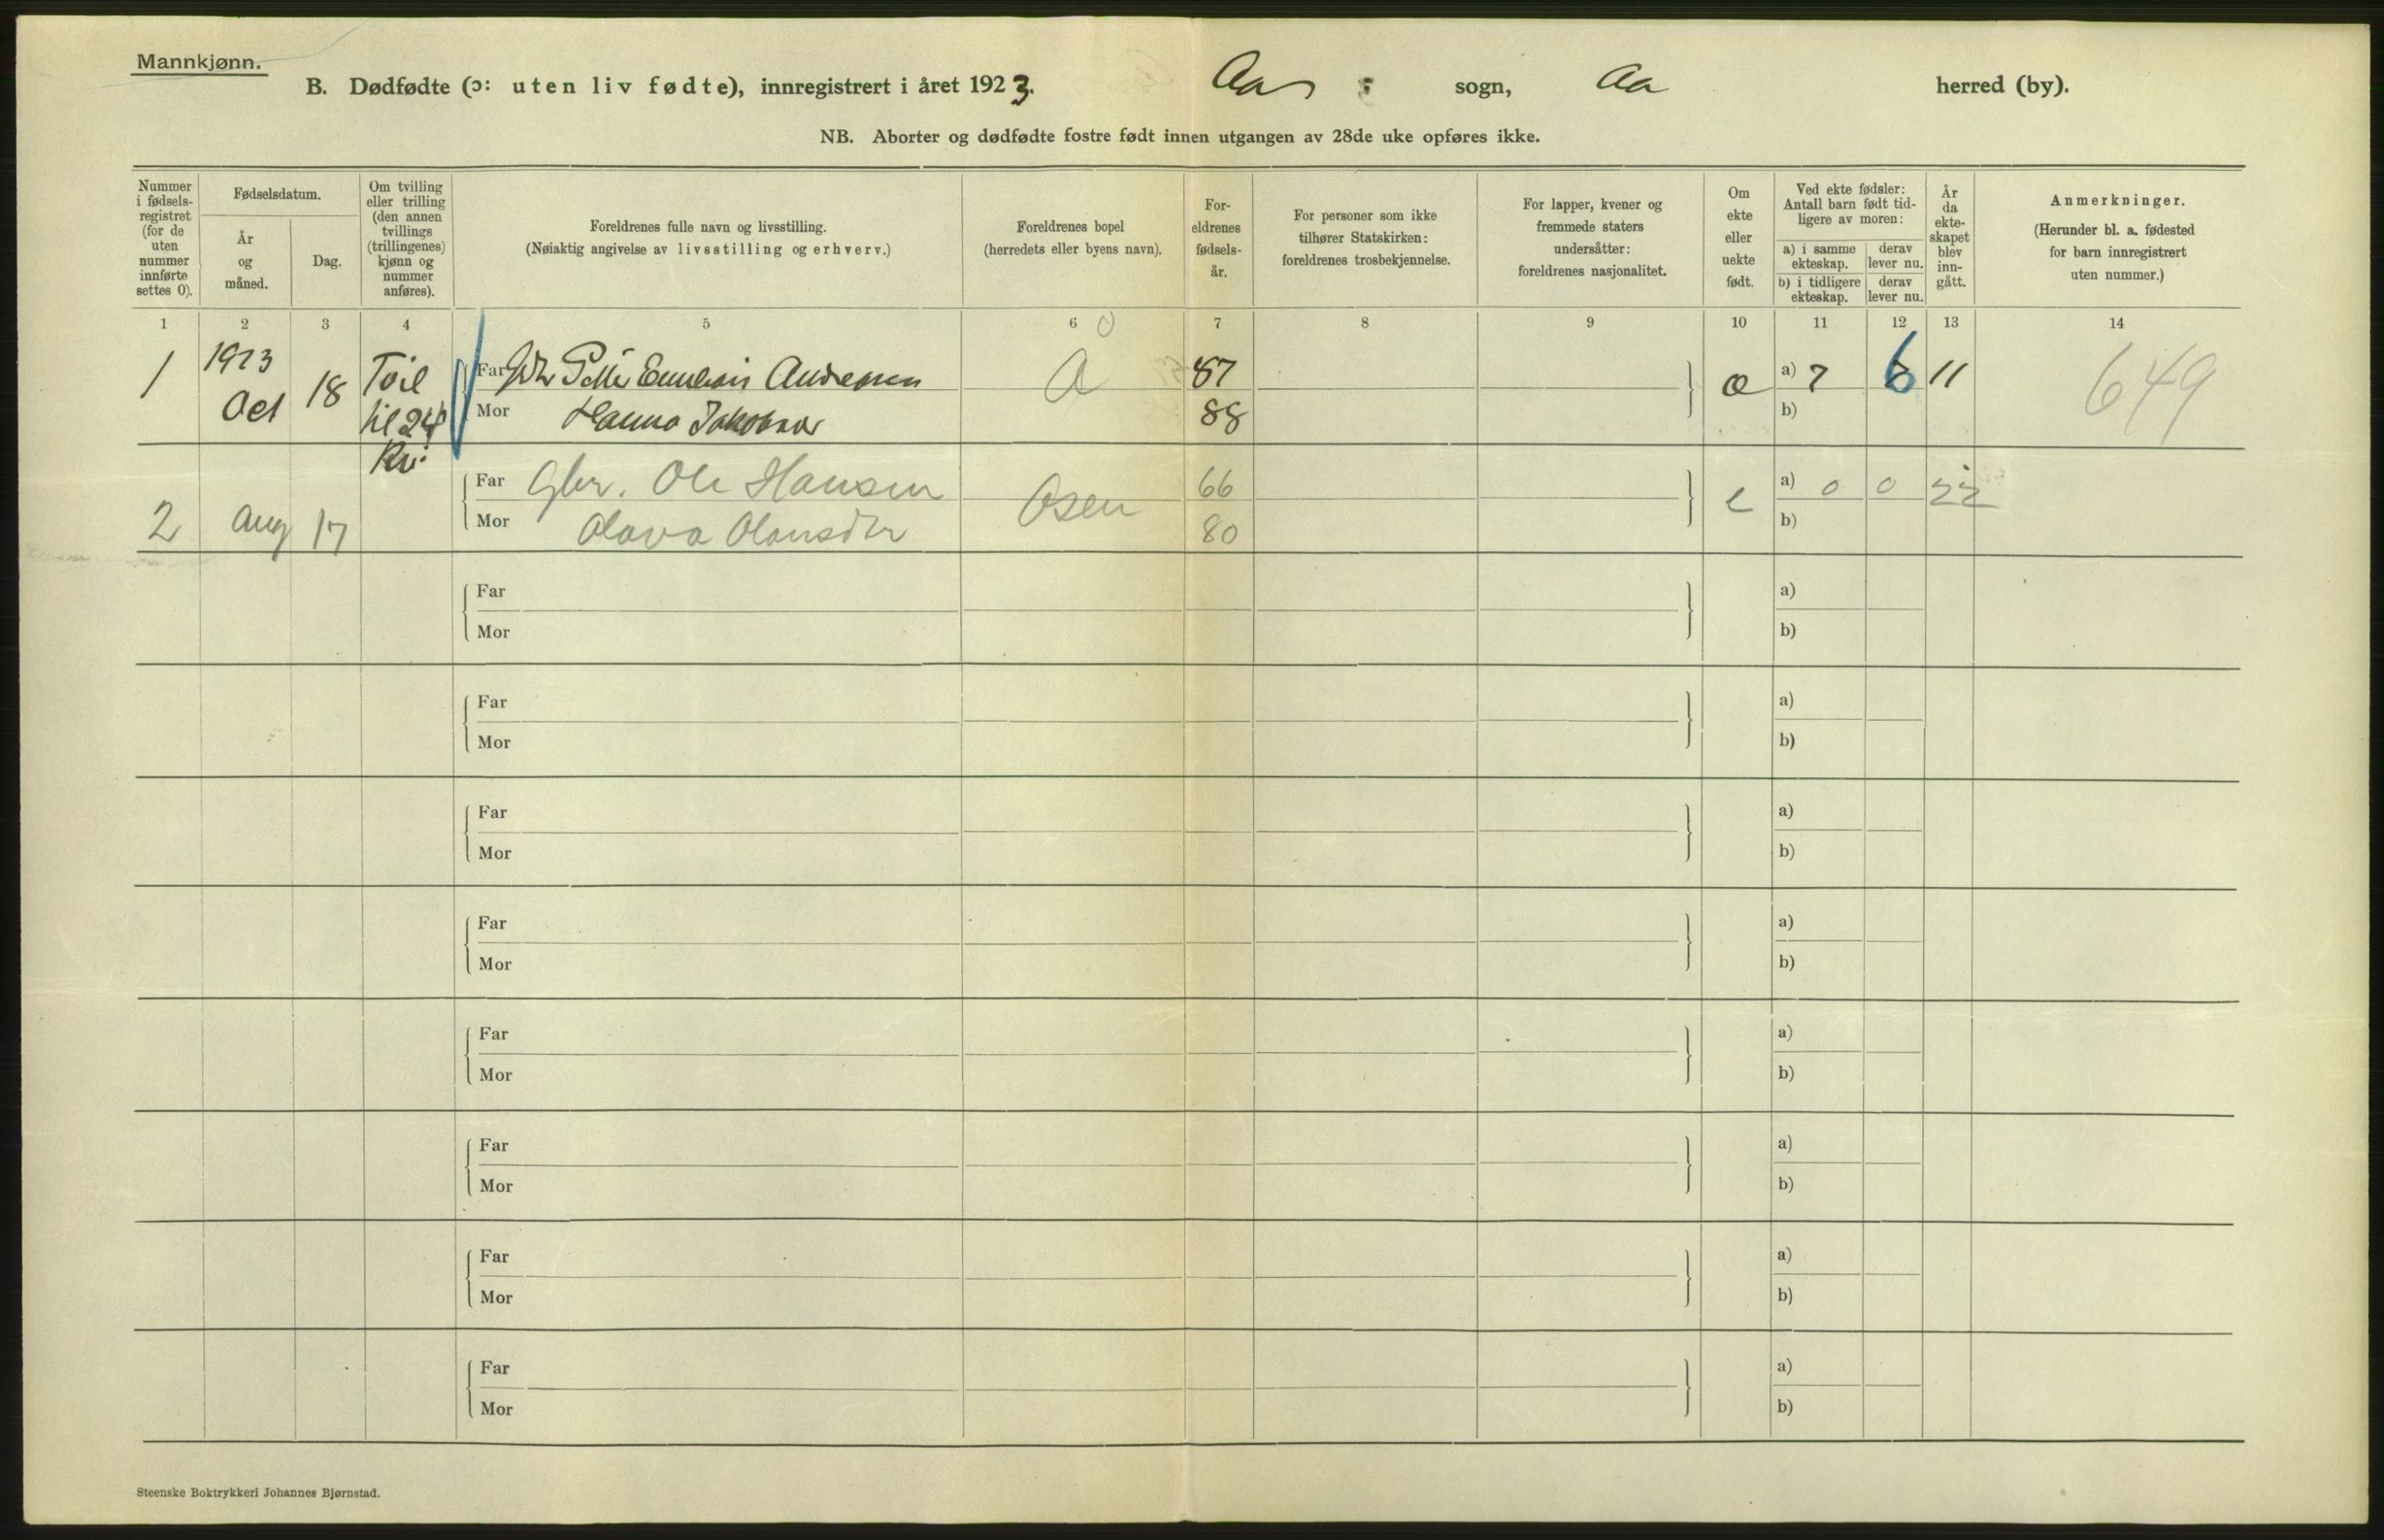 Mannkjønn.
B. Dødfødte (ɔ: uten liv fødte), innregistrert i året 1923. Aa sogn, Aa herred (by).
NB. Aborter og dødfødte fostre født innen utgangen av 28de uke opføres ikke.
Nummer i fødselsregistret (for de uten nummer innførte settes 0).
Fødselsdatum.
År og måned.
Dag.
Om tvilling eller trilling (den annen tvillings (trillingenes) kjønn og nummer anføres).
Foreldrenes fulle navn og livsstilling.
(Nøiaktig angivelse av livsstilling og erhverv.)
Foreldrenes bopel
(herredets eller byens navn).
Foreldrenes fødselsår.
For personer som ikke tilhører Statskirken: foreldrenes trosbekjennelse.
For lapper, kvener og fremmede staters undersåtter: foreldrenes nasjonalitet.
Om ekte eller uekte født.
Ved ekte fødsler: Antall barn født tidligere av moren:
a) i samme ekteskap. derav lever nu.
b) i tidligere ekteskap. derav lever nu.
År da ekteskapet blev inngått.
Anmerkninger.
(Herunder bl. a. fødested for barn innregistrert uten nummer.)
1 2 3 4 5 6 7 8 9 10 11 12 13 14
1 1923 Oct 18 til 24 Far Andersen A 87 a) 7 6 11 649
Mor Hanna 88 b)
2 Aug 17 Far Gbr. Ole Hansen Osen 66 e a) 0 0 22
Mor Olava Olausdtr 80 b)
Far a)
Mor b)
Far a)
Mor b)
Far a)
Mor b)
Far a)
Mor b)
Far a)
Mor b)
Far a)
Mor b)
Far a)
Mor b)
Far a)
Mor b)
Steenske Boktrykkeri Johannes Bjørnstad.